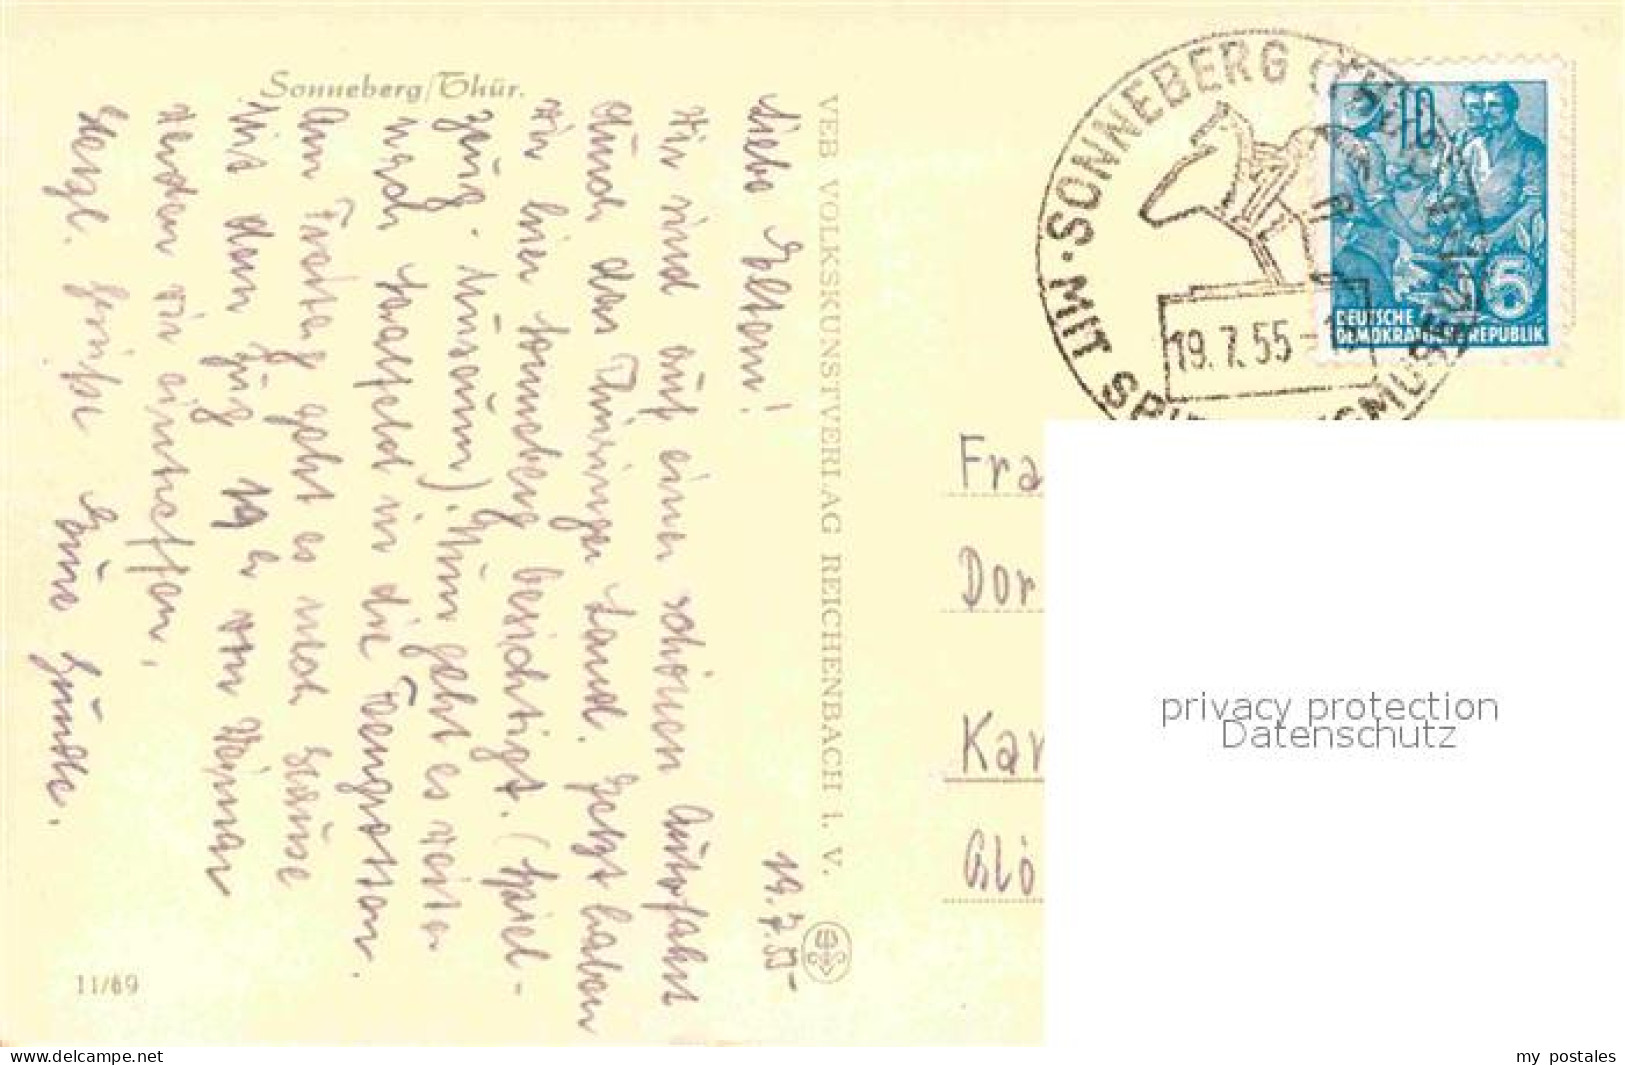 Sonneberg/Thür.
19.7.55
Liebe Eltern!
Wir sind auf einer schönen Autofahrt
durch das Thüringer Land. Jetzt haben
wir hier Sonneberg besichtigt. (Spiel-
zeug-Museum). Nun geht es weiter
nach Saalfeld in die Feengrotten.
Am Freitag geht es nach Hause
Mit dem Zug 19 h von Weimar
werden wir eintreffen.
Herzl. Grüße Eure
VEB VOLKSKUNSTVERLAG REICHENBACH I. V.
11/69
SONNEBERG (THÜR) · MIT SPIELZEUGMUSEUM ·
19.7.55
10
5
DEUTSCHE
DEMOKRATISCHE REPUBLIK
Fra
Dor
Kar
Glö
privacy protection
Datenschutz
www.delcampe.net
my postales